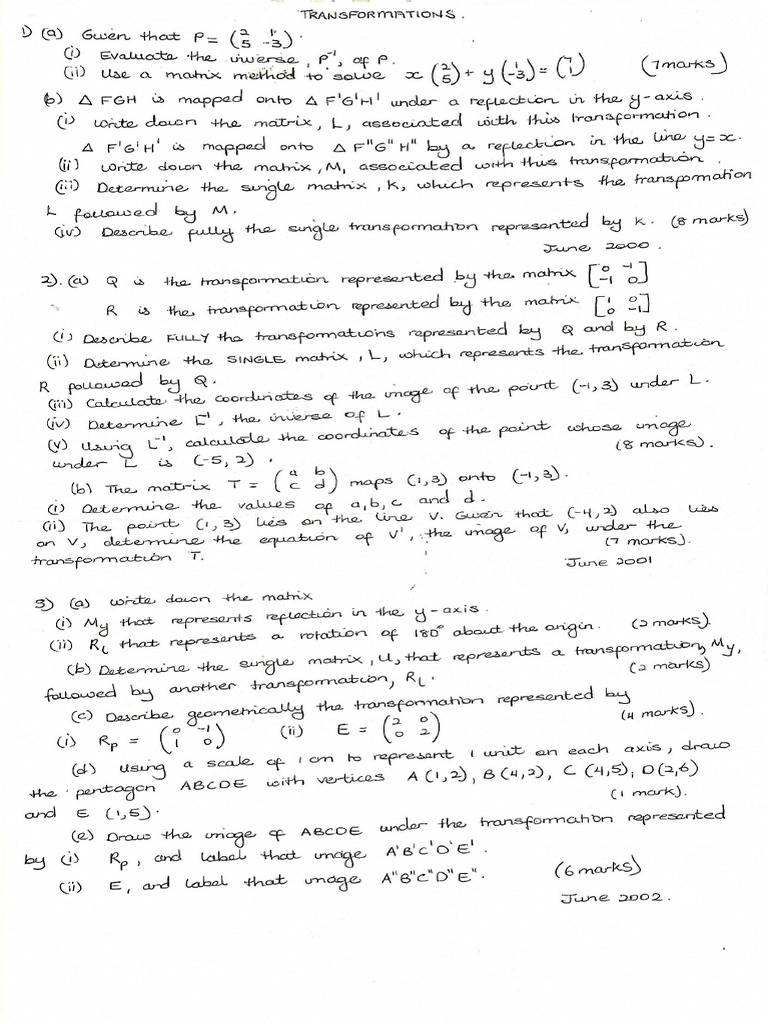 TRANSFORMATIONS.
1) (a) Given that P = (2 1 / 5 -3).
(i) Evaluate the inverse, P⁻¹, of P.
(ii) Use a matrix method to solve x (2 / 5) + y (1 / -3) = (7 / 1) (7 marks)
(b) △ FGH is mapped onto △ F'G'H' under a reflection in the y-axis.
(i) Write down the matrix, L, associated with this transformation.
△ F'G'H' is mapped onto △ F"G"H" by a reflection in the line y=x.
(ii) Write down the matrix, M, associated with this transformation.
(iii) Determine the single matrix, K, which represents the transformation
L followed by M.
(iv) Describe fully the single transformation represented by K. (8 marks)
June 2000.
2). (a) Q is the transformation represented by the matrix [0 -1 / -1 0]
R is the transformation represented by the matrix [1 0 / 0 -1]
(i) Describe FULLY the transformations represented by Q and by R.
(ii) Determine the SINGLE matrix, L, which represents the transformation
R followed by Q.
(iii) Calculate the coordinates of the image of the point (-1, 3) under L.
(iv) Determine L⁻¹, the inverse of L.
(v) Using L⁻¹, calculate the coordinates of the point whose image
under L is (-5, 2). (8 marks).
(b) The matrix T = (a b / c d) maps (1,3) onto (-1,3).
(i) Determine the values of a, b, c and d.
(ii) The point (1, 3) lies on the line V. Given that (-4, 2) also lies
on V, determine the equation of V', the image of V, under the
transformation T. (7 marks).
June 2001
3) (a) Write down the matrix
(i) My that represents reflection in the y-axis.
(ii) R that represents a rotation of 180° about the origin. (2 marks).
(b) Determine the single matrix, U, that represents a transformation, My,
followed by another transformation, R. (2 marks)
(c) Describe geometrically the transformation represented by
(i) Rp = (0 -1 / 1 0) (ii) E = (2 0 / 0 2) (4 marks).
(d) Using a scale of 1 cm to represent 1 unit on each axis, draw
the pentagon ABCDE with vertices A (1,2), B (4,2), C (4,5), D (2,6)
and E (1,5). (1 mark).
(e) Draw the image of ABCDE under the transformation represented
by (i) Rp, and label that image A'B'C'D'E'.
(ii) E, and label that image A"B"C"D"E". (6 marks)
June 2002.